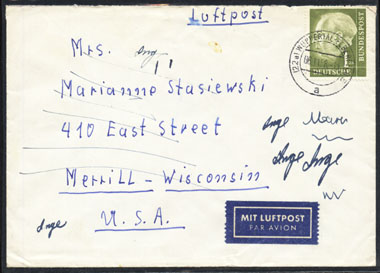 Luftpost
Mrs. Inge
Marianne Stasiewski
410 East Street
Merrill - Wisconsin
U. S. A.
Inge
Inge
Inge Inge
1
DEUTSCHE
BUNDESPOST
(22a) WUPPERTAL
a
MIT LUFTPOST
PAR AVION